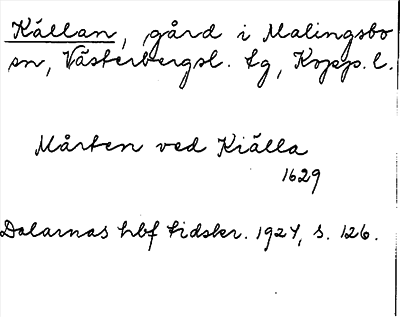 Källan, gård i Malingsbo
sn, Västerbergsl. tg, Kopp. l.
Mårten ved Kiälla
1629
Dalarnas hbf tidskr. 1924, s. 126.